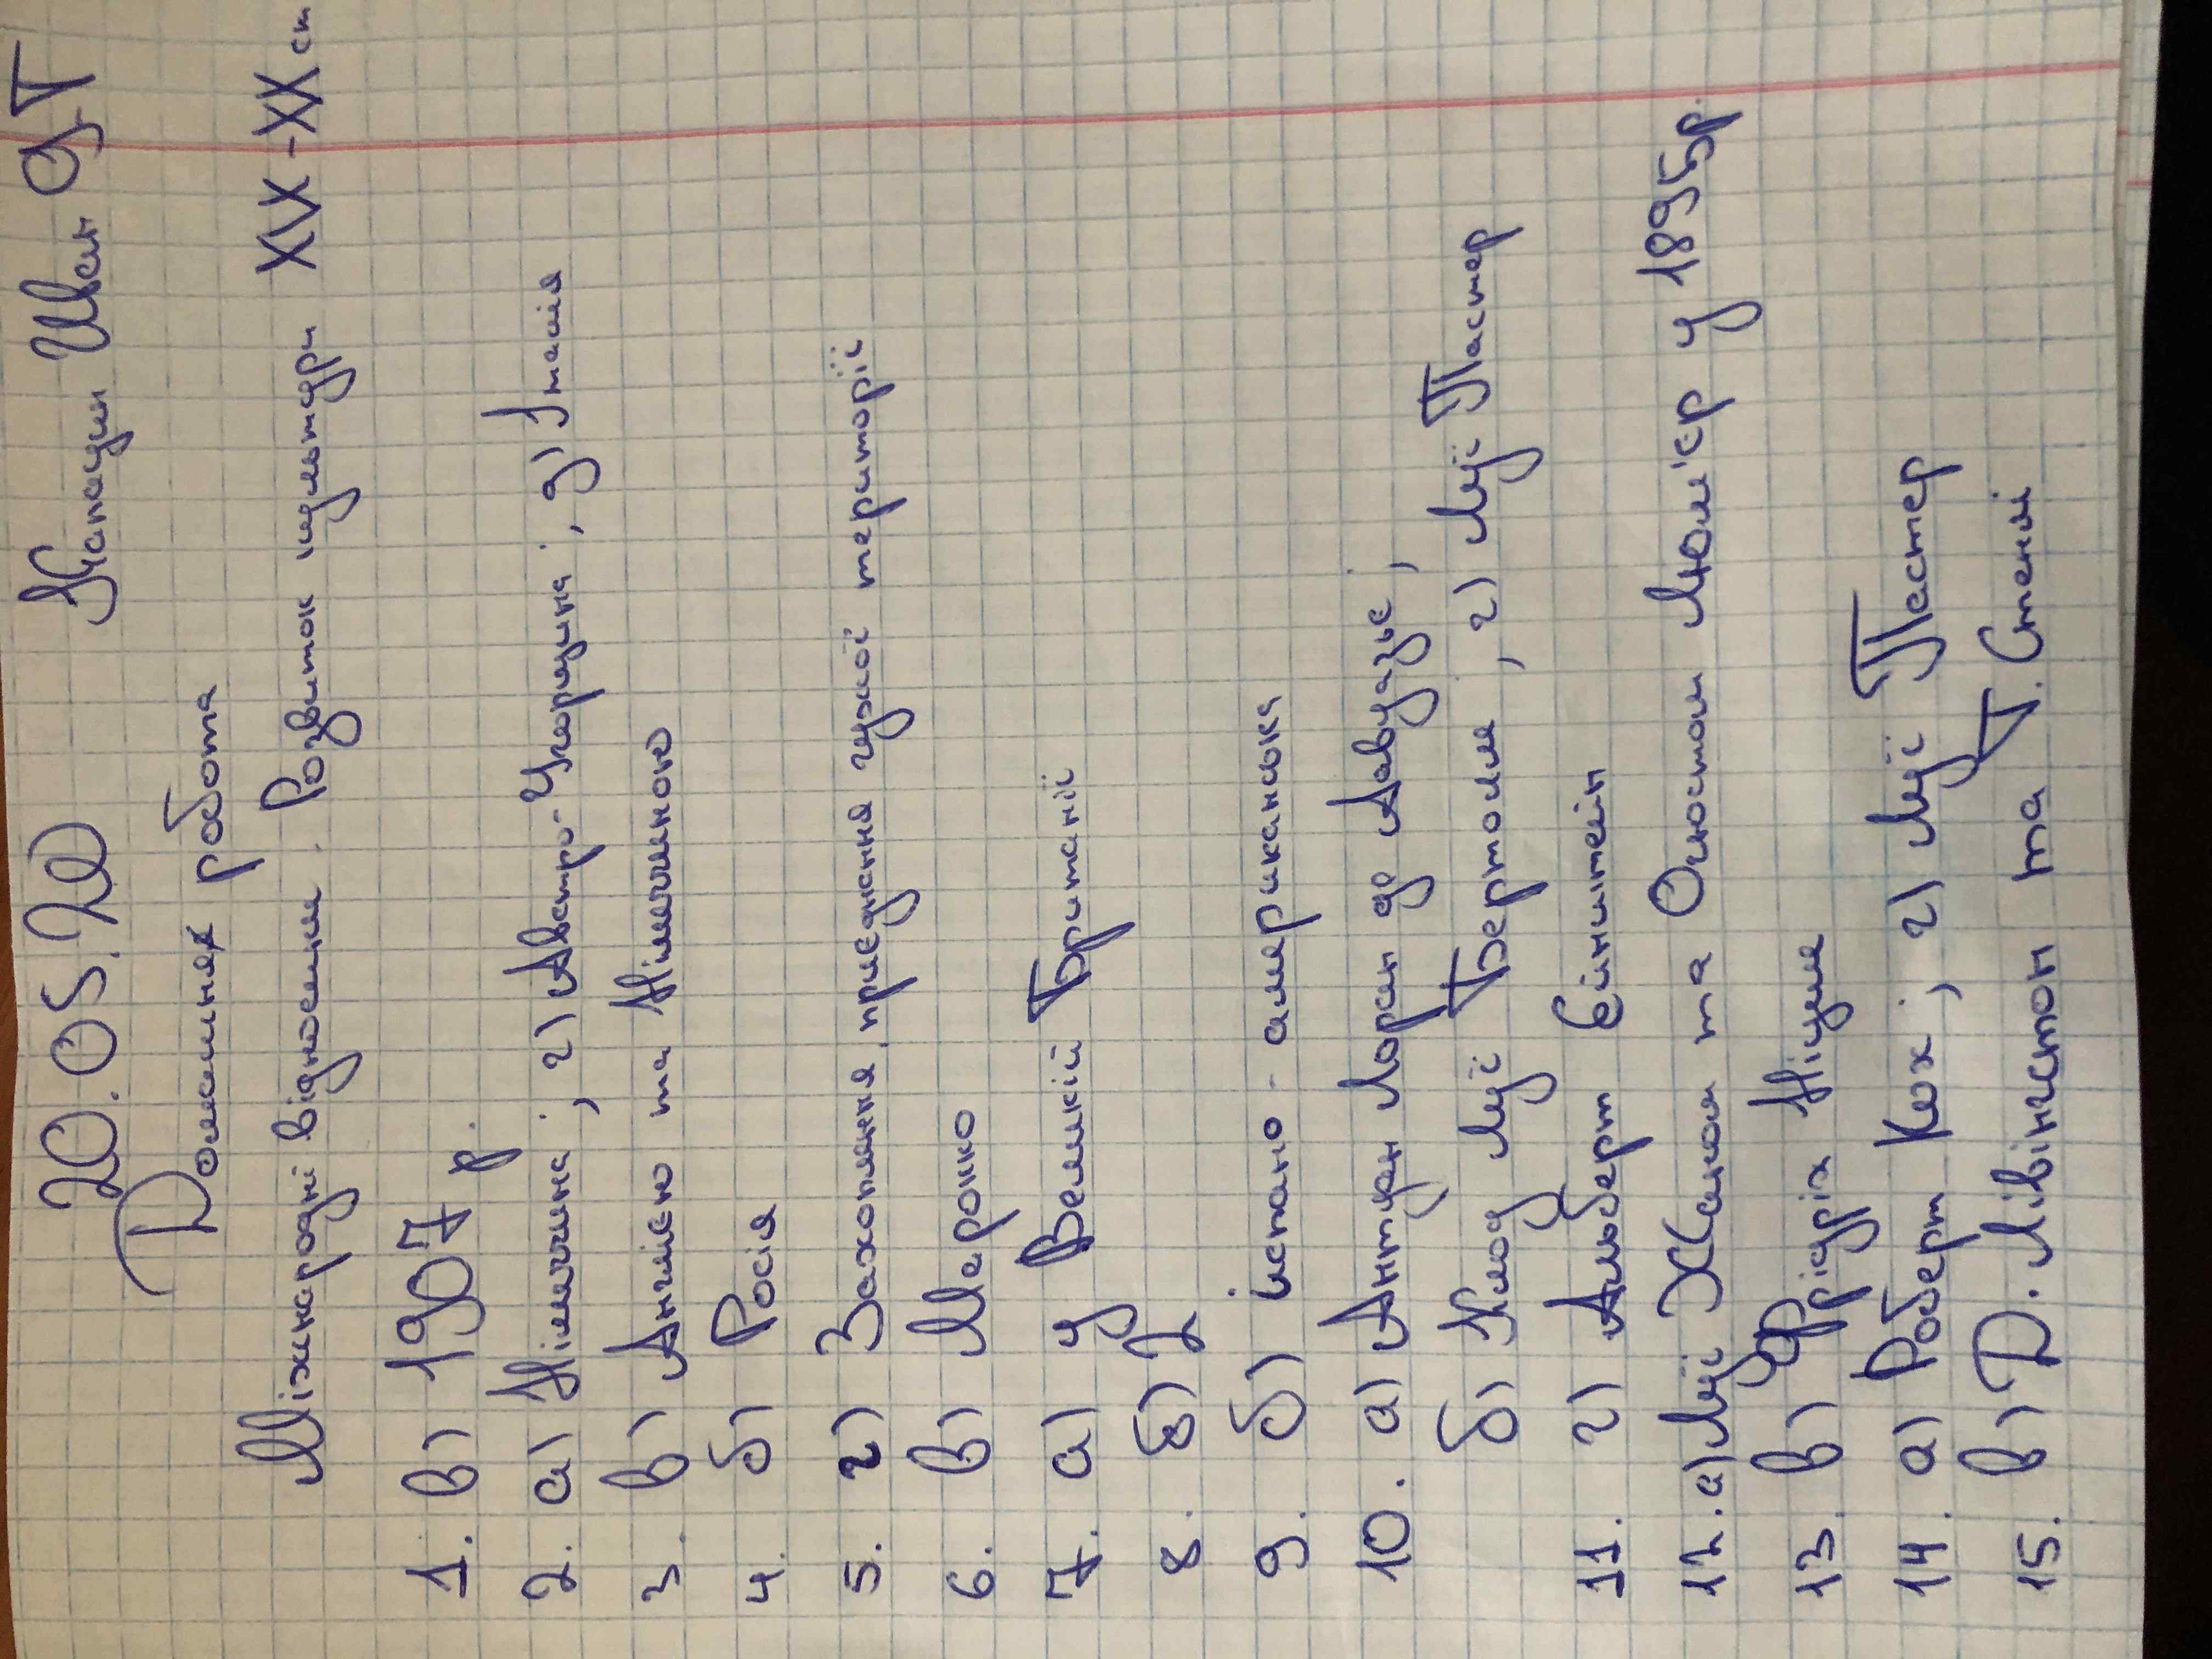 20.05.20 Капацин Иван 9-Т
Домашня робота
Міжнародні відносини. Розвиток культури XIX-XX ст
1. в) 1907 р.
2. а) Німеччина ; г) Австро-Угорщина ; д) Італія
3. в) Англією та Німеччиною
4. б) Росія
5. г) Захоплення, приєднання чужої території
6. в) Марокко
7. а) у Великій Британії
8. б) 2
9. б) іспано - американська
10. а) Антуан Лоран де Лавуазьє ;
б) Клод Луї Бертолле , г) Луї Пастер
11. г) Альберт Ейнштейн
12. а) Луї Жаном та Огюстом Люм'єр у 1895р.
13. в) Фрідріх Ніцше
14. а) Роберт Кох ; г) Луї Пастер
15. в) Д. Лівінгстон та Г. Стенлі